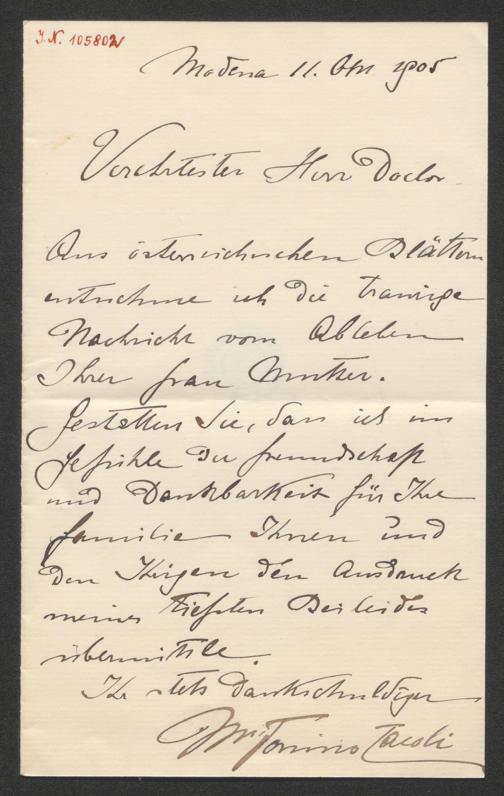 J.N. 105802
Modena 11. Okt 1905
Verehrtester Herr Doctor
Aus österreichischen Blättern
entnehme ich die traurige
Nachricht vom Ableben
Ihrer Frau Mutter.
Gestatten Sie, dass ich im
Gefühle der Freundschaft
und Dankbarkeit für Ihre
Familie Ihnen und
den Ihrigen den Ausdruck
meines tiefsten Beileides
übermittle.
Ihr stets dankschuldiger
Tacoli